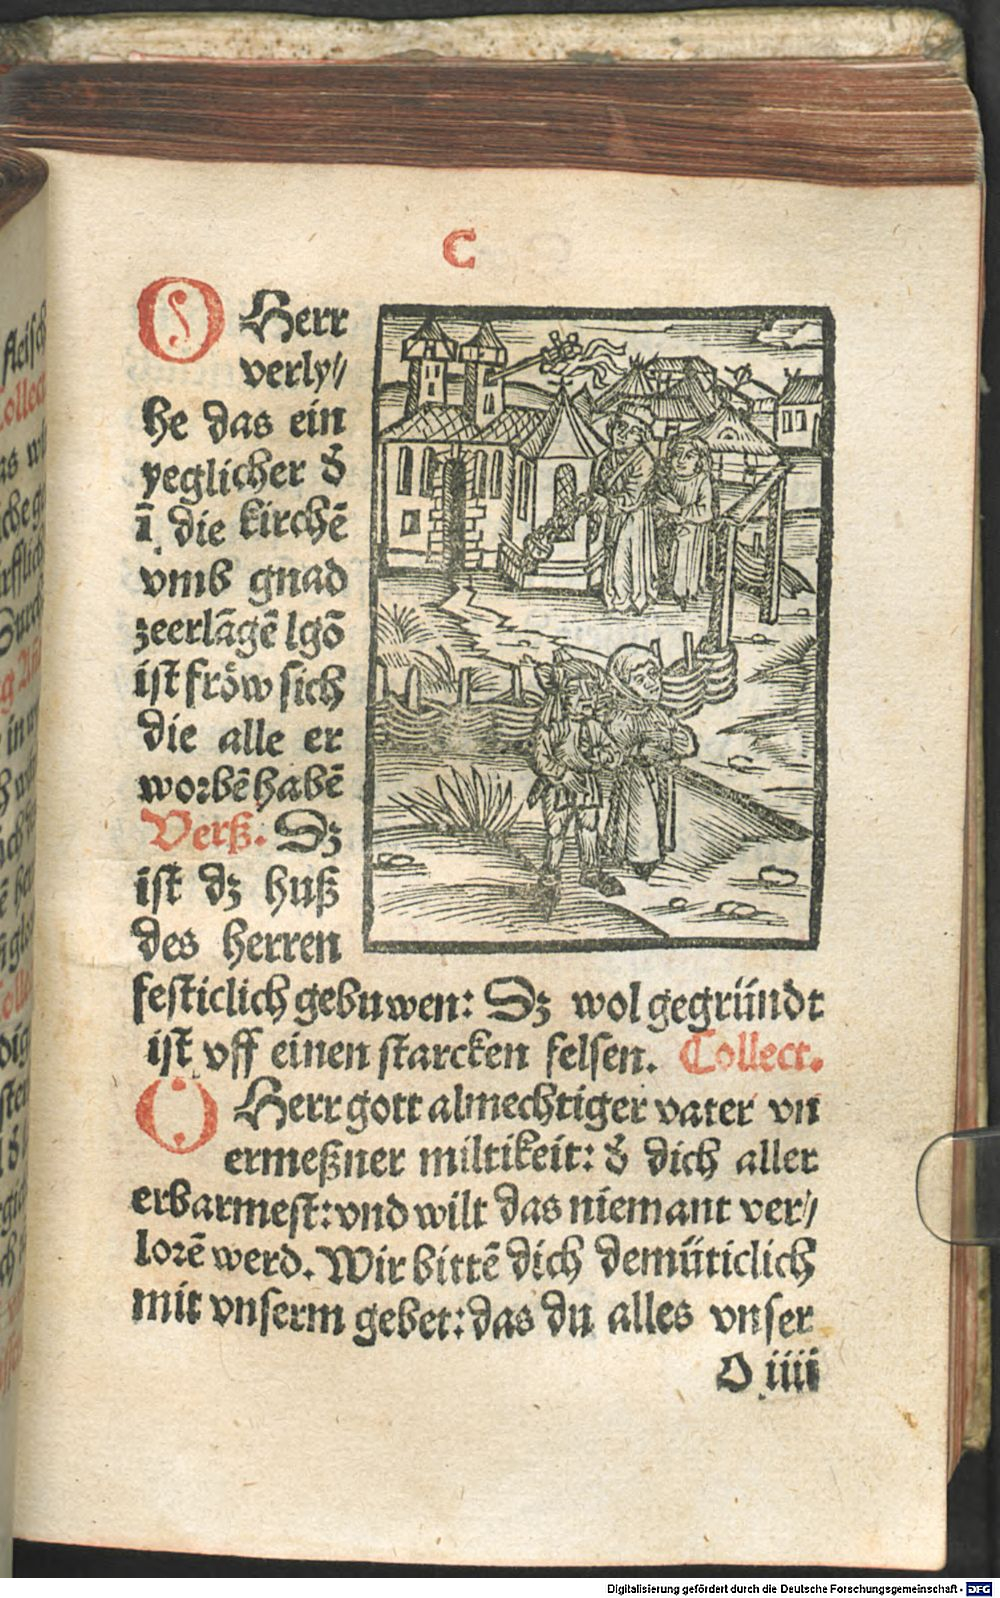 C
O Herr
verly//
he das ein
yeglicher d̄
ī die kirchē
vmb gnad
zeerlāgē lgō
ist fröw sich
die alle er
worbē habē
Verß. Dz
ist dz huß
des herren
festiclich gebuwen: Dz wol gegründt
ist vff einen starcken felsen. Collect.
O Herr gott almechtiger vater vn
ermeßner miltikeit: d̄ dich aller
erbarmest: vnd wilt das niemant ver//
lorē werd. Wir bittē dich demüticlich
mit vnserm gebet: das du alles vnser
O iiii
Digitalisierung gefördert durch die Deutsche Forschungsgemeinschaft - DFG